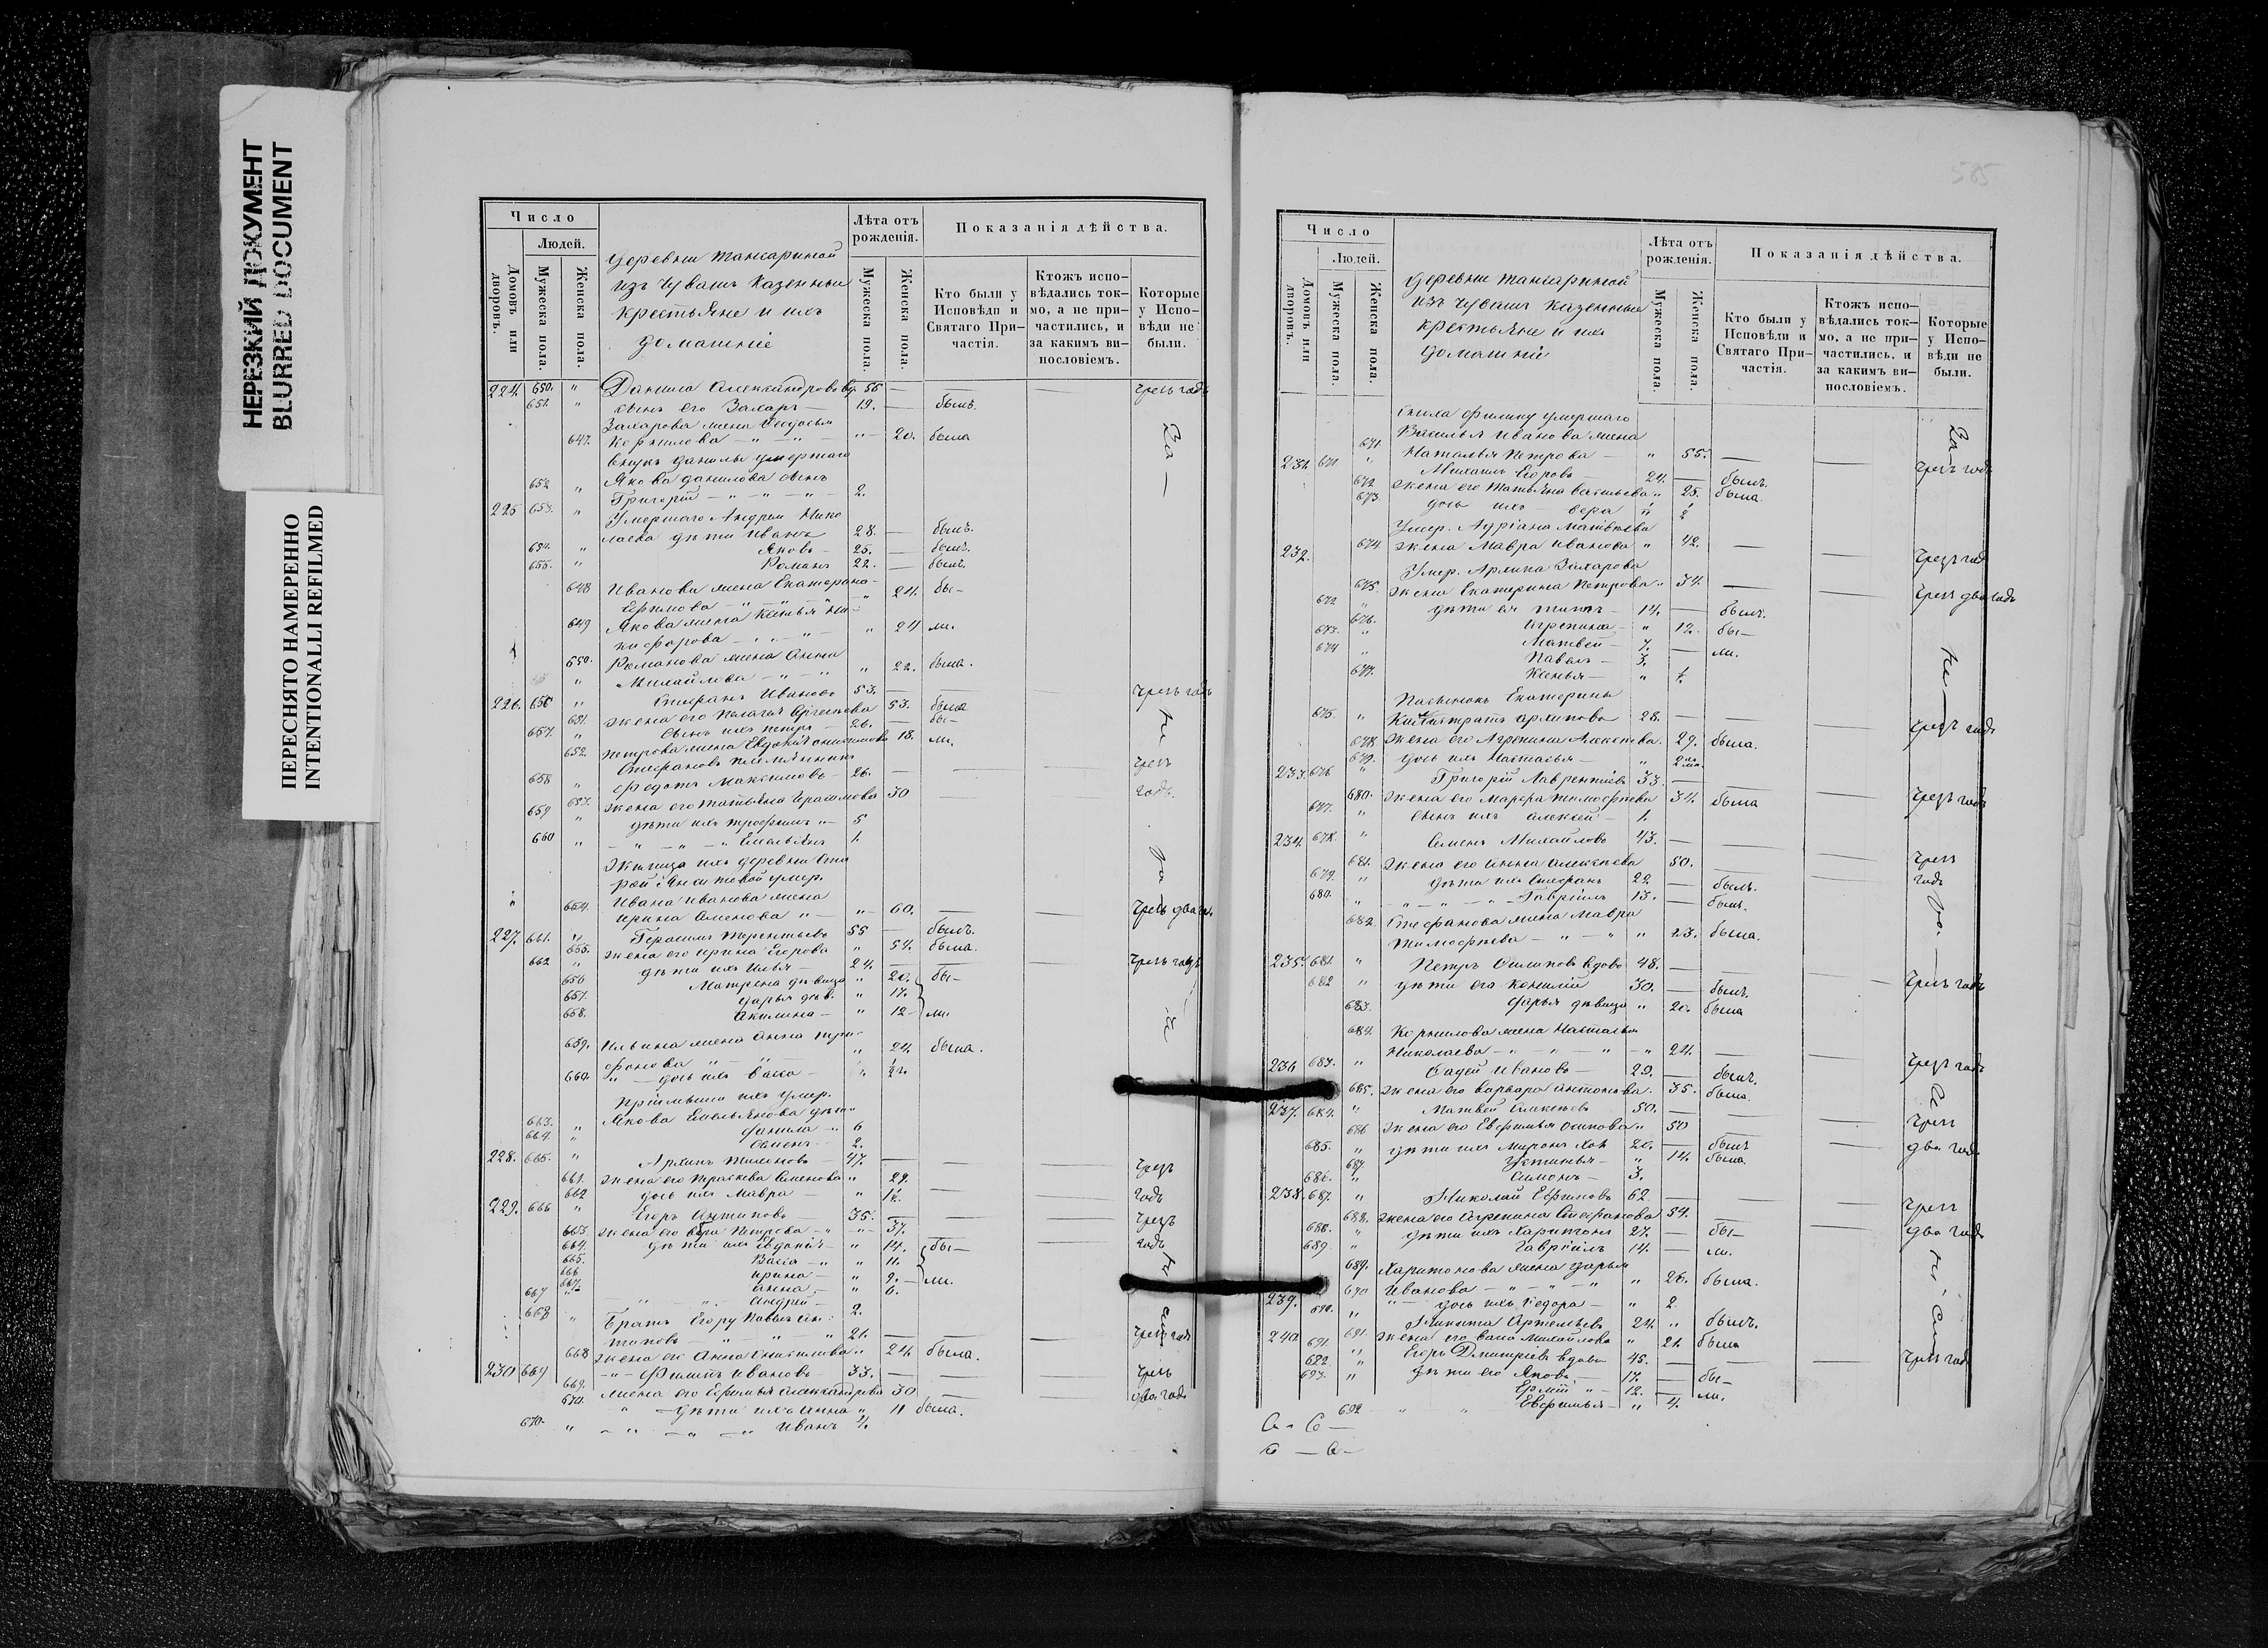 НЕРЕЗКИЙ ДОКУМЕНТ
BLURRED DOCUMENT
ПЕРЕСНЯТО НАМЕРЕННО
INTENTIONALLI REFILMED
Число
Людей.
Домовъ или дворовъ.
Мужеска пола.
Женска пола.
Деревни
изъ Чувашъ Казенныи
крестьяне и ихъ
домашніе
Лѣта отъ рожденія.
Мужеска пола.
Женска пола.
Показанія дѣйства.
Кто были у Исповѣди и Святаго Причастія.
Ктожъ исповѣдались токмо, а не причастились, и за какимъ винословіемъ.
Которые у Исповѣди не были.
224. 650. " Данила Александровъ вд. 56 — — — чрезъ годъ
651. " сынъ его Захаръ — 19. — былъ.
Захарова жена Ѳедосья
647. Корнилова — " — " — "— 20. была
внукъ Данилы умершаго
Якова Данилова сынъ
652 " Григорій — " — " — " — 2.
225 653. " Умершаго Андрея Нико
лаева дѣти Иванъ 28. — былъ.
654. " Яковъ — 25. — былъ.
655. " Романъ 22. — былъ.
648 Иванова жена Екатерина
Ефимова — " — " — " " 24. бы—
649 Якова жена Ксенья Ни-
кифорова — " 24 ли.
650. Романова жена Анна
Михайлова — " — " " 22. была.
226. 656 " Стефанъ Ивановъ 53. — — — чрезъ годъ
651. жена его Пелагея Сергеева 53. была
657. " сынъ ихъ Петръ — 26. — бы—
652. Петрова жена Евдокія 18. ли.
Стефановъ племянникъ
658 " Федотъ Максимовъ — 26. — — чрезъ
653. жена его Татьяна Герасимова 30 — — годъ.
659 " дѣти ихъ Трофимъ "— 5
660 " — " — " — " Емельянъ 1.
Жилица ихъ деревни Ста
рой умер.
Ивана Иванова жена
654. Ирина Семенова " — "— 60. — — чрезъ два г.
227. 661. " Герасимъ Терентьевъ 55 — былъ.
655. жена его Ирина Егорова " 54. была.
662 " дѣти ихъ Илья — 24. — — чрезъ годъ
656 Матрена дѣвица " 20. бы—
657. Дарья дѣв. " 17.
658. Акилина — " 12 — ли.
659. Ильина жена Анна Три-
фонова " — " — " 24. была.
660. " — дочь ихъ Васса — " 1/2 г.
Пріимыши ихъ умер.
Якова Емельянова дѣти
663. " Данила — " 6
664. " Семенъ — 2.
228. 665. " Архипъ — 47. — — — чрезъ
661. жена его Прасковья Семенова " 29.
662 дочь ихъ Мавра — " — — годъ
229. 666 " Егоръ Антиповъ 35. — — — чрезъ
663. жена его Петрова — " "— 37. — — годъ
664. дѣти ихъ Евдокія — " 14. бы—
665. Васса — " " 11.
666 Ирина — " 9. — ли.
667. Анна — " 6.
667 " " Андрей — 2.
668 " Братъ Егору Павелъ Ан-
типовъ — " — " — " 21. — — — чрезъ годъ
668 жена его Анна " 24. была.
230 669 — " — Филипъ Ивановъ — 33. — — — чрезъ
669. жена его Ефимья Александрова 30 — два года
670. " — дѣти ихъ Анна " 11 была.
670. " — " — " — " Иванъ 4.
585
Число
Людей.
Домовъ или дворовъ.
Мужеска пола.
Женска пола.
Деревни
изъ Чувашъ казенныи
крестьяне и ихъ
домашніе
Лѣта отъ рожденія.
Мужеска пола.
Женска пола.
Показанія дѣйства.
Кто были у Исповѣди и Святаго Причастія.
Ктожъ исповѣдались токмо, а не причастились, и за какимъ винословіемъ.
Которые у Исповѣди не были.
Сноха Филипу умершаго
Василья Иванова жена
671. Наталья Петрова — " 55. — — чрезъ годъ
231. 671 " Михаилъ Егоровъ — 24. — былъ.
672 жена его Татьяна Васильева " 25. была.
673. дочь ихъ — Вера " 2
Умер. Адріана Матвѣева
232. 674 жена Мавра Иванова " 42. — — чрезъ годъ
Умер. Архипа Захарова
675. жена Екатерина Петрова " 34. — — чрезъ два года
672 " дѣти ея — 14. — былъ.
676. Агрепина — " 12. бы—
673. " Матвей — 7. — ли.
674 " Павелъ — 3.
677. Ксенья — " 1.
Пасынокъ Екатерины
675. " Архиповъ 28. — — — чрезъ годъ
678. жена его Агрепина Алексѣева. 29. была.
679. дочь ихъ Настасья — "
233. 676 " Григорій Лаврентьевъ 33. — — — чрезъ годъ
680. жена его Марфа Тимофѣева 34. была
677. " сынъ ихъ Алексѣй — 1.
234. 678. " Семенъ Михайловъ 43. — — — чрезъ
681. жена его Анна Алексѣева 50. — — годъ
679. " дѣти ихъ Стефанъ 22. — былъ.
680. " — " — " — " Гавріилъ 13. — былъ.
682. Стефанова жена Мавра
Тимофѣева — " — " " 23. была.
235. 681. " Петръ вдовъ 48. — — — чрезъ годъ
682 " дѣти его 30. — былъ.
683. Дарья дѣвица " 20. была
684. Корнилова жена Настасья
Николаева — " — " — " 24. — — чрезъ годъ
236 683. " Ивановъ — 29. — былъ.
685. жена его Варвара Антонова. 35. была.
237. 684. " Матвей Алексѣевъ 50. — — — чрезъ
686 жена его Евфимья Осипова " 50 — — два года
685. " дѣти ихъ Миронъ 20. — былъ
687. Устинья — " 14. была.
686. " Симонъ — 3.
238. 687. " Николай Ефимовъ 62. — — — чрезъ
688. жена его Агрепина Стефанова 54. — — два года
688. " дѣти ихъ Харитонъ 27. — бы—
689. " Гавріилъ 14. — ли.
689. Харитонова жена Дарья
Иванова — " — " — " " 26. была.
690 " — дочь ихъ Ѳедора — " 2.
239. 690. " Никита Артемьевъ 24. " былъ.
691. жена его Михайлова " 21. была
240 691. " Егоръ Дмитріевъ вдовъ 45. — — — чрезъ годъ
692. " дѣти его Яковъ — 17. — бы—
693. " — 12. — ли.
692 " " Евфимья — " 4.